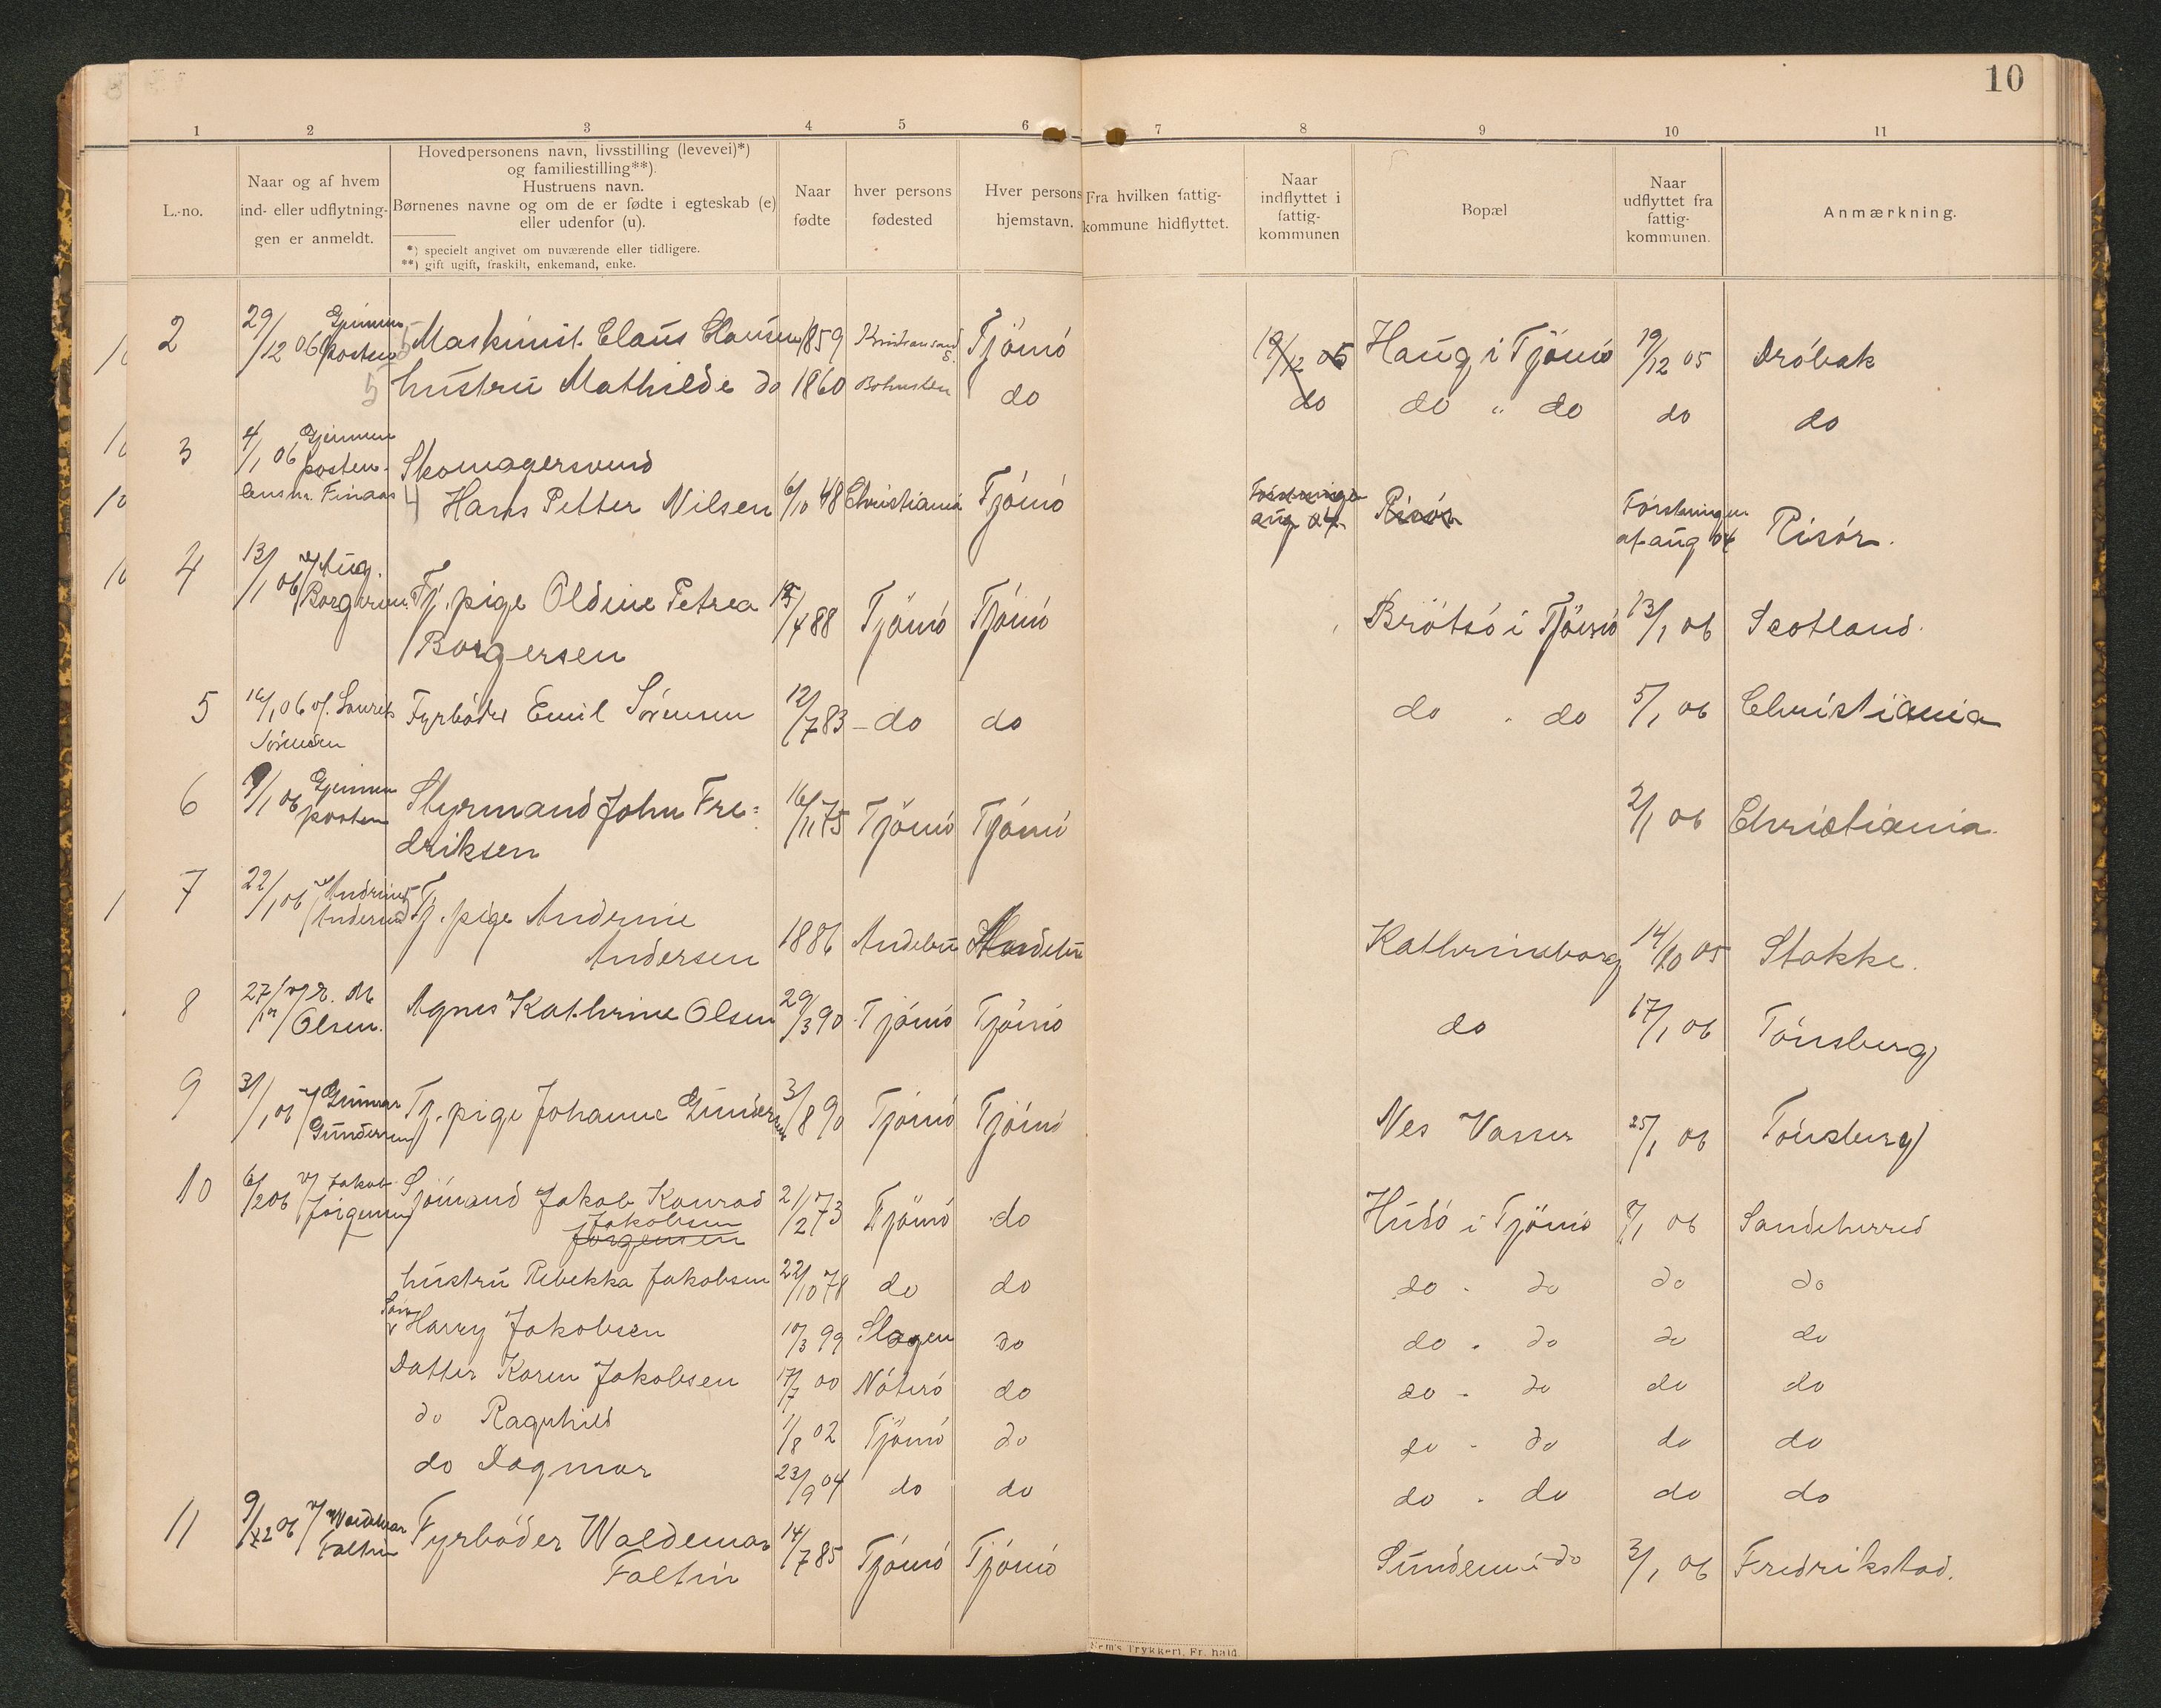 10
1 2 3 4 5 6 7 8 9 10 11
L.-no.
Naar og af hvem
ind- eller udflytnin-
gen er anmeldt.
Hovedpersonens navn, livsstilling (levevei)*)
og familiestilling**).
Hustruens navn.
Børnenes navne og om de er fødte i egteskab (e)
eller udenfor (u).
*) specielt angivet om nuværende eller tidligere.
**) gift ugift, fraskilt, enkemand, enke.
Naar
fødte
hver persons
fødested
Hver persons
hjemstavn.
Fra hvilken fattig-
kommune hidflyttet.
Naar
indflyttet i
fattig-
kommunen
Bopæl
Naar
udflyttet fra
fattig-
kommunen.
Anmærkning.
2 29/12 06 Gjennem posten Maskinist Claus Clausen 1859 Kristiansand S. Tjömö 19/12 05 Haug i Tjömö 19/12 05 Dröbak
5 hustru Mathilde do 1860 Bohuslen do do do " do do do
3 4/1 06 Gjennem posten. Skomagersvend
lensm. Finaas 4 Hans Petter Nilsen 6/10 48 Christiania Tjömö aug 04 Risör Forstningen af aug 04 Risör.
4 13/1 06 v/ Aug. Borgersen Tj. pige Oldine Petrea /4 88 Tjömö Tjömö Brötsö i Tjömö 13/1 06 Scotland.
Borgersen
5 16/1 06 v/. Laurits Sörensen Fyrböder Emil Sörensen 12/7 83 - do do do " do 5/1 06 Christiania
6 9/1 06 Gjennem posten Styrmand John Fre= 16/11 75 Tjömö Tjömö 2/1 06 Christiania.
driksen
7 22/1 06 v/ Andrine Andersen Tj. pige Andrine
Andersen 1886 Andebu Andebu Kathrineborg 14/10 05 Stokke.
8 27/1 v/ E. M Olsen. Agnes Kathrine Olsen 29/3 90 Tjömö Tjömö do 17/1 06 Tönsberg
9 31/1 06 v/ Gunnar Gundersen Tj. pige Johanne Gundersen 3/8 90 Tjömö Tjömö Nes Vasser 25/1 06 Tönsberg
10 6/2 06 v/ Jakob Jörgensen Sjömand Jakob Konrad 21/2 73 Tjömö do Hudö i Tjömö 9/1 06 Sandeherred
Jakobsen
Jörgensen
hustru Rebekka Jakobsen 22/10 78 do do do " do do do
Sön Harry Jakobsen 10/3 99 Slagen do do " do do do
Datter Karen Jakobsen 17/7 00 Nöterö do do " do do do
do Ragnhild 1/8 02 Tjömö do do " do do do
do Dagmar 23/9 04 do do do " do do do
11 9/2 06 v/ Waldemar Faltin Fyrböder Waldemar 14/7 85 Tjömö Tjömö Sundene i do 3/1 06 Fredrikstad.
Faltin
Sem's Trykkeri, Fr. hald.